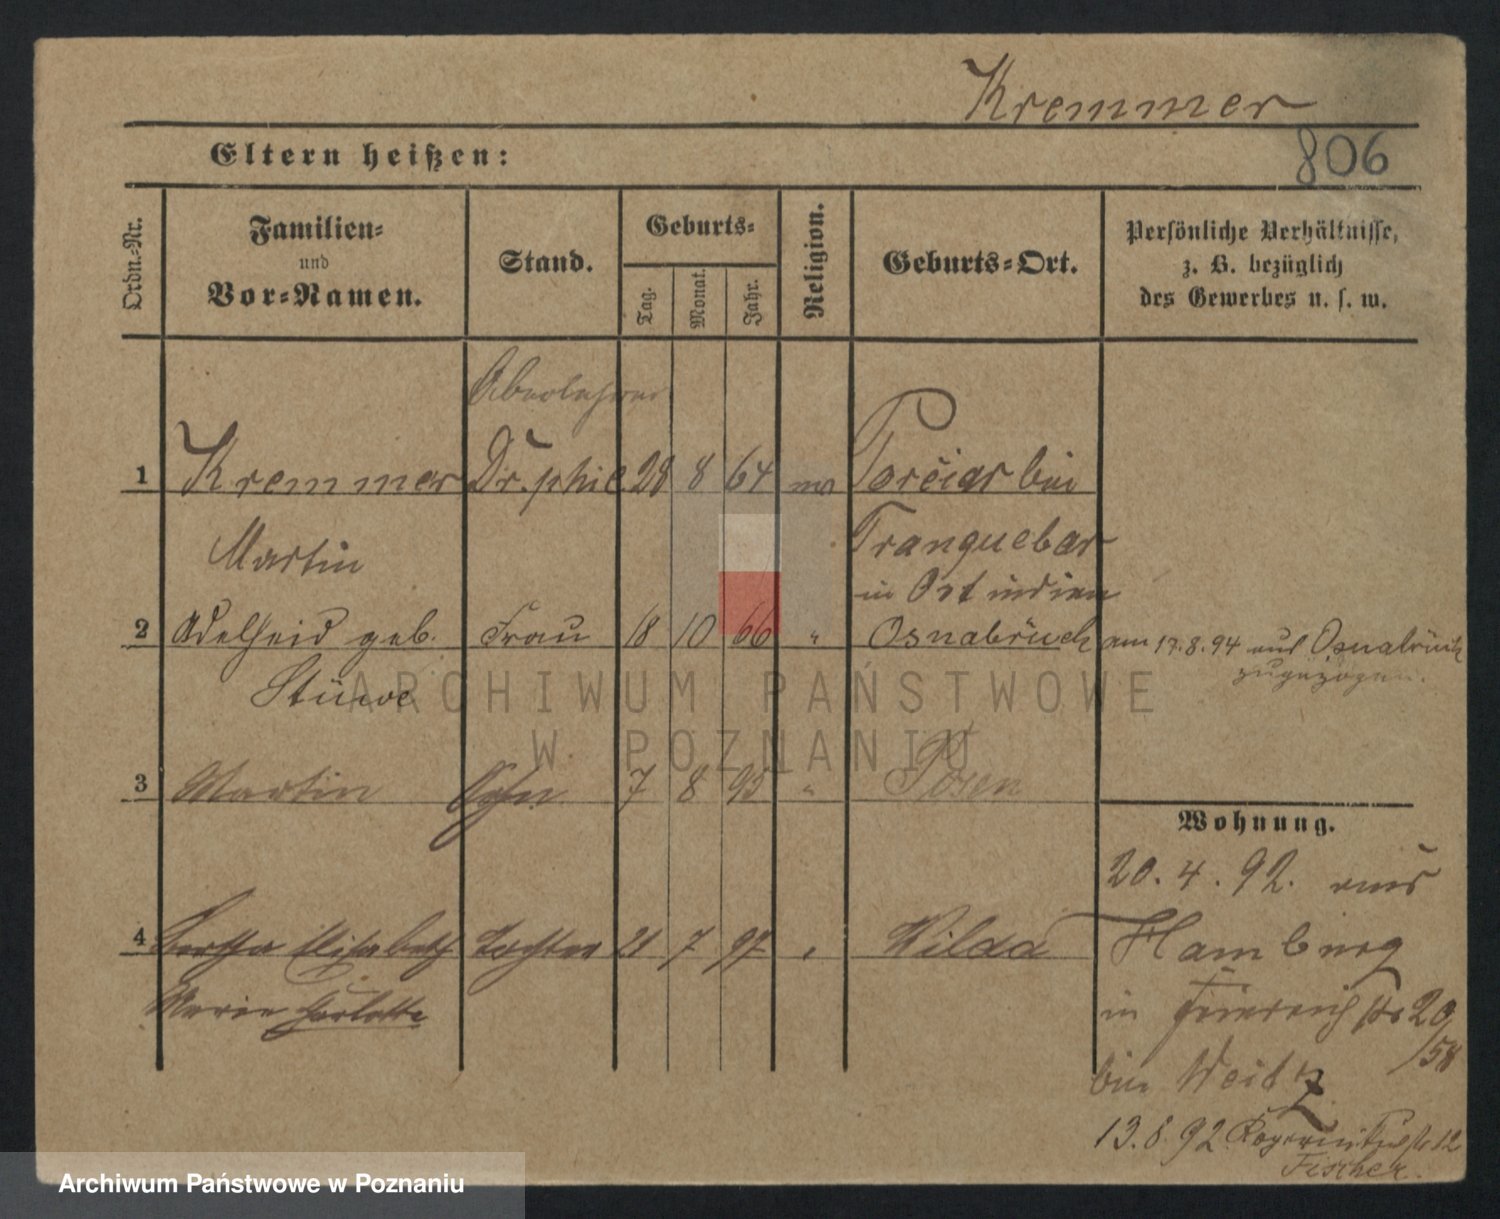 Kremmer
806
Eltern heißen:
Ordn.-Nr.
Familien-
und
Vor-Namen.
Stand.
Geburts-
Tag.
Monat.
Jahr.
Religion.
Geburts-Ort.
Persönliche Verhältnisse,
z. B. bezüglich
des Gewerbes u. s. w.
Oberlehrer
1 Kremmer Dr. phil 28 8 64 Poreiar bei
Martin Tranquebar
in Ost indien
2 Adelheid geb. Frau 18 10 66 " Osnabrück am 17.8.94 aus Osnabrück
Stüwe zugezogen.
3 Martin Sohn 7 8 95 " Posen
Wohnung.
20.4.92. aus
4 Bertha Elisabeth Tochter 21 7 97 " Wilda Hamburg
Marie Charlotte in 20/58
bei Weitz
13.8.92 12
Fischer.
ARCHIWUM PAŃSTWOWE
W POZNANIU
Archiwum Państwowe w Poznaniu